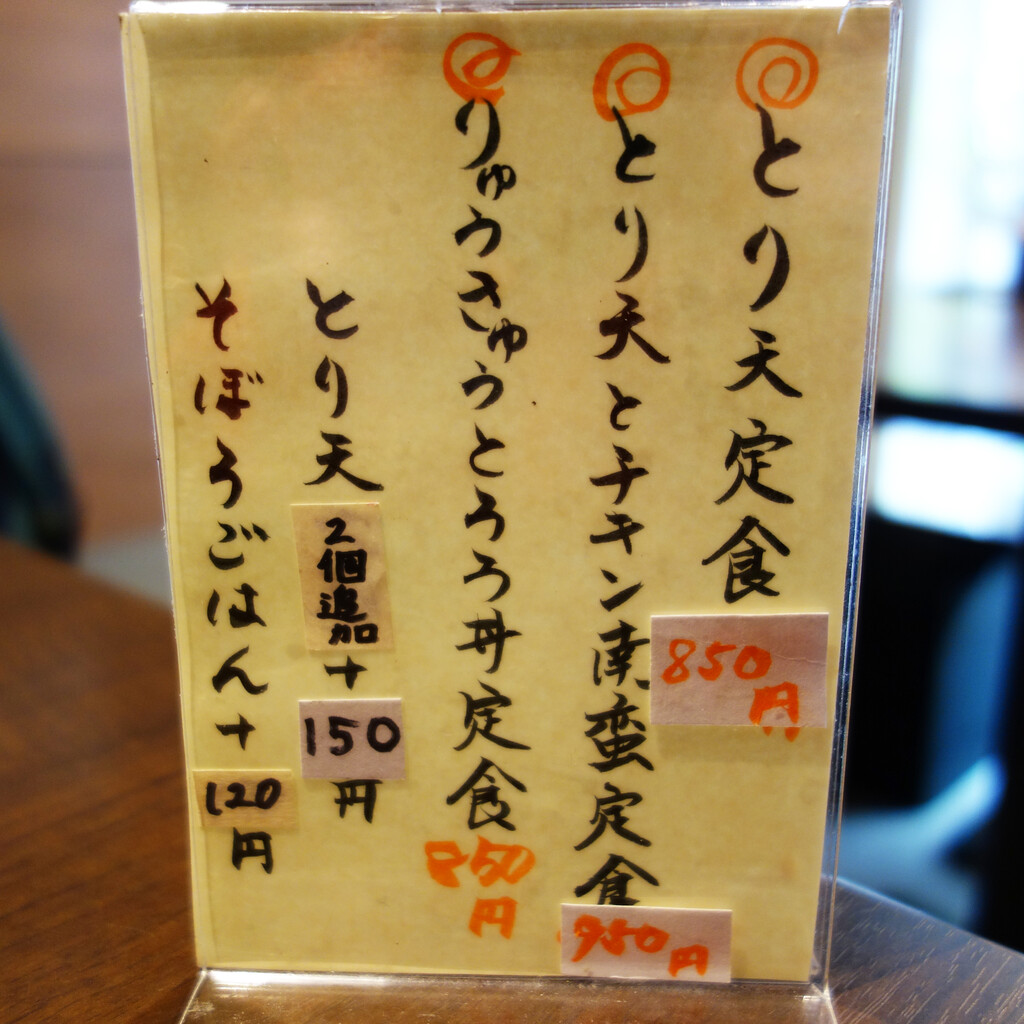 とり天定食 850円
とり天とチキン南蛮定食 950円
りゅうきゅうとろろ丼定食 850円
とり天 2個追加+150円
そぼろごはん+120円